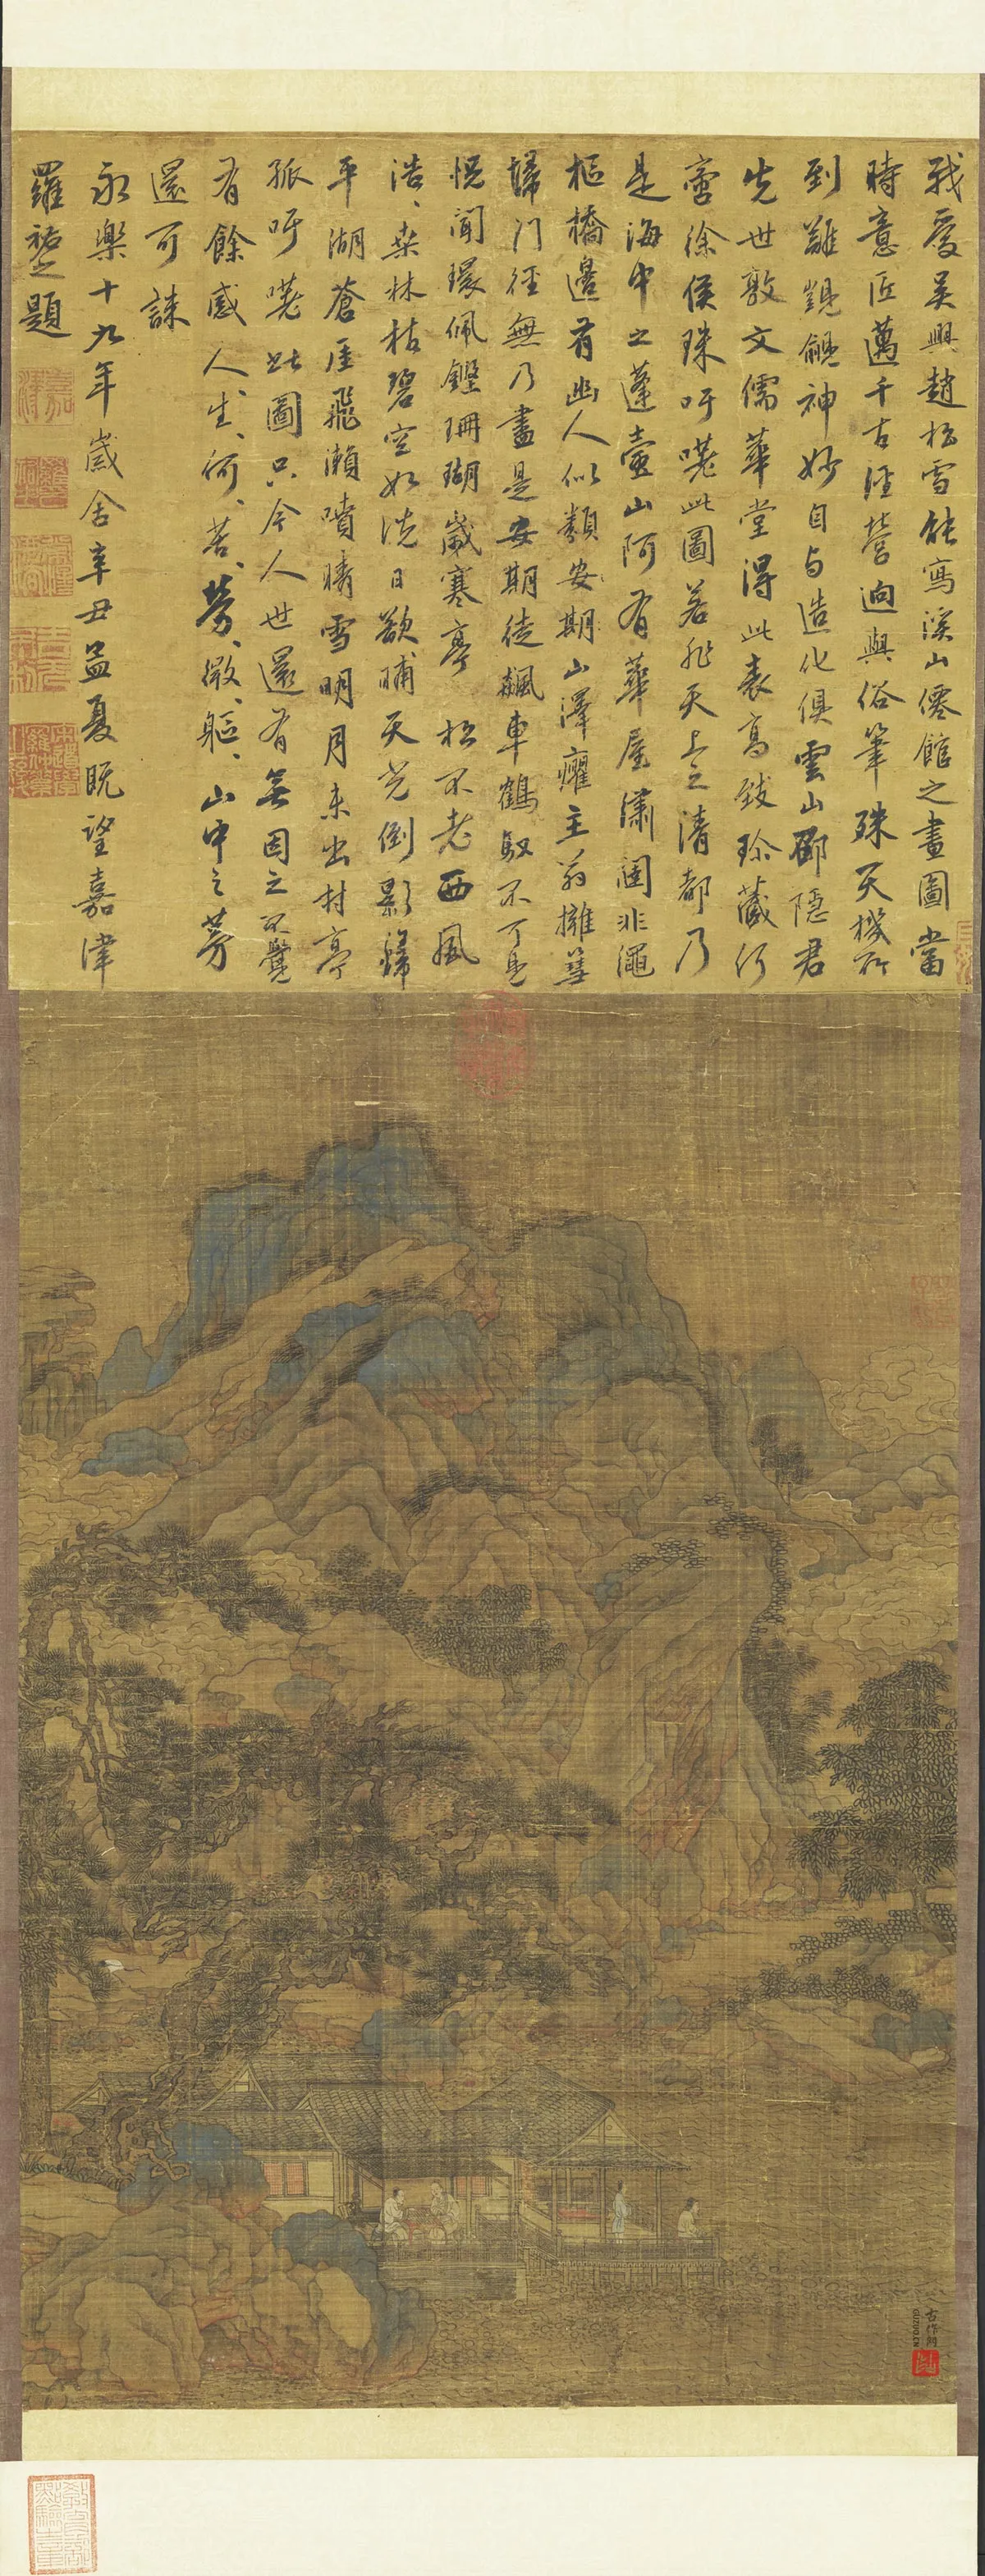 我愛吳興趙松雪能寫溪山僊館之畫圖當
時意匠邁千古經營迥與俗筆殊天機所
到難覬覦神妙自与造化俱雲山鄒隱君
先世敦文儒華堂得此表高致珍藏何
啻徐侯珠吁嗟此圖若非天上之清都乃
是海中之蓬壺山阿有華屋瀟闥非繩
樞橋邊有幽人似類安期山澤癯主翁擁篲
掃門徑無乃畫是安期徒飆車鶴馭不可見
恍聞環佩鏗珊瑚歲寒亭 松不老西風
浩、桒林枯碧空如洗日欲晡天光倒影歸
平湖蒼厓飛瀨噴晴雪明月未出村亭
孤吁嗟此圖只今人世還有無因之不覺
有餘感人、生、何、苦、勞、微、軀、山中之芳
還可誅
永樂十九年歲舍辛丑孟夏既望嘉津
羅祐之題
古作網
GUZUO.CN